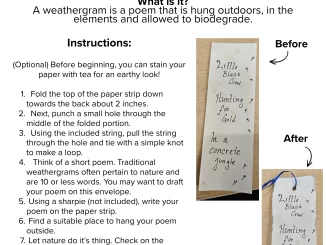 What is it?
A weathergram is a poem that is hung outdoors, in the
elements and allowed to biodegrade.
Instructions:
(Optional) Before beginning, you can stain your
paper with tea for an earthy look!
1. Fold the top of the paper strip down
towards the back about 2 inches.
2. Next, punch a small hole through the
middle of the folded portion.
3. Using the included string, pull the string
through the hole and tie with a simple knot
to make a loop.
4. Think of a short poem. Traditional
weathergrams often pertain to nature and
are 10 or less words. You may want to draft
your poem on this envelope.
5. Using a sharpie (not included), write your
poem on the paper strip.
6. Find a suitable place to hang your poem
outside.
7. Let nature do it's thing. Check on the
Before
Little
Black
Crow
Hunting
for
Gold
In a
concrete
jungle
After
Little
Black
Crow
Hunting
for